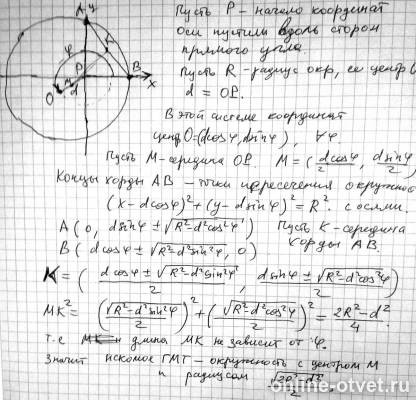 A y
φ
K
P
B
x
M
O
d
Пусть P - начало координат
Оси пустили вдоль сторон
прямого угла
Пусть R - радиус окр, ее центр
d = OP.
В этой системе координат
центр O=(dcosφ, dsinφ), ∀φ
Пусть M-середина OP. M = (dcosφ/2, dsinφ/2)
Концы хорды AB - точки пересечения окружно
(x - dcosφ)² + (y - dsinφ)² = R² с осями.
A (0, dsinφ ± √R²-d²cos²φ) Пусть K-середина
B (dcosφ ± √R²-d²sin²φ, 0) хорды AB.
K = (dcosφ ± √R²-d²sin²φ/2, dsinφ ± √R²-d²cos²φ/2)
MK² = (√R²-d²sin²φ/2)² + (√R²-d²cos²φ/2)² = 2R²-d²/4.
т.е длина MK не зависит от φ.
Значит искомое ГМТ - окружность с центром M
и радиусом √2R²-d²/2.
online-otvet.ru